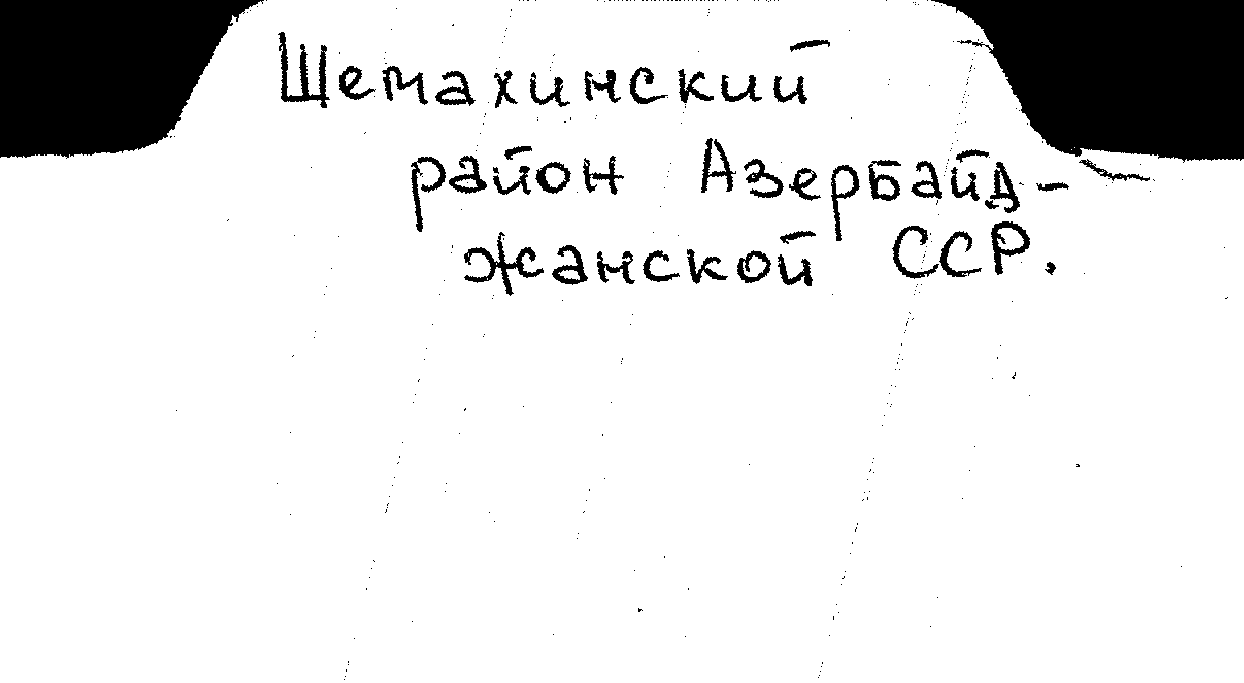 Шемахинский
район Азербайд-
жанской ССР.